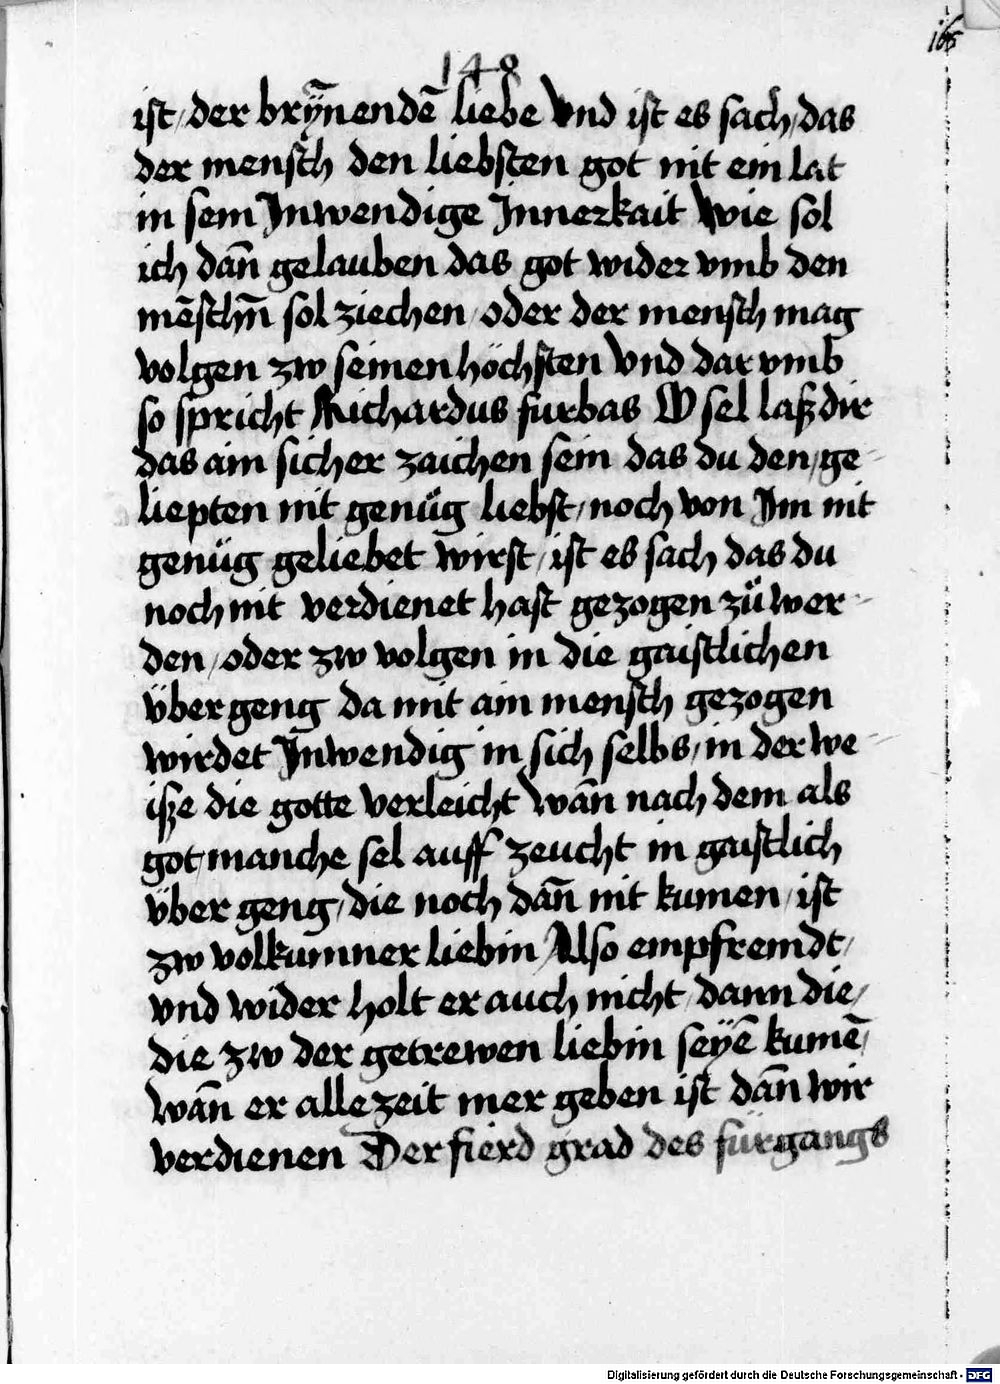 165
148
ist / der brỹnendē liebe Vnd ist es sach / das
der mensch den liebsten got nit ein lat
in sein Inwendige Innerkait Wie sol
ich dañ gelauben das got wider vmb den
mēschñ sol ziechen / oder der mensch mag
volgen zw seinen höchsten Vnd dar vmb
so spricht Richardus furbas O sel laß dir
das ain sicher zaichen sein das du den / ge-
liepten nit genüg liebst / noch von Im nit
genüg geliebet wirst / ist es sach das du
noch nit verdienet hast gezogen zü wer-
den / oder zw volgen in die gaistlichen
über geng da mit ain mensch gezogen
wirdet Inwendig in sich selbs / in der we-
iße die gotte verleicht Wañ nach dem als
got manche sel auff zeucht in gaistlich
über geng / die noch dañ nit kumen / ist
zw volkumner liebin / Also empfremdt /
vnd wider holt er auch nicht / dann die /
die zw der getrewen liebin seyē kumē /
Wañ er alle zeit mer geben ist dañ wir
verdienen Der fierd grad des fürgangs
Digitalisierung gefördert durch die Deutsche Forschungsgemeinschaft - DFG